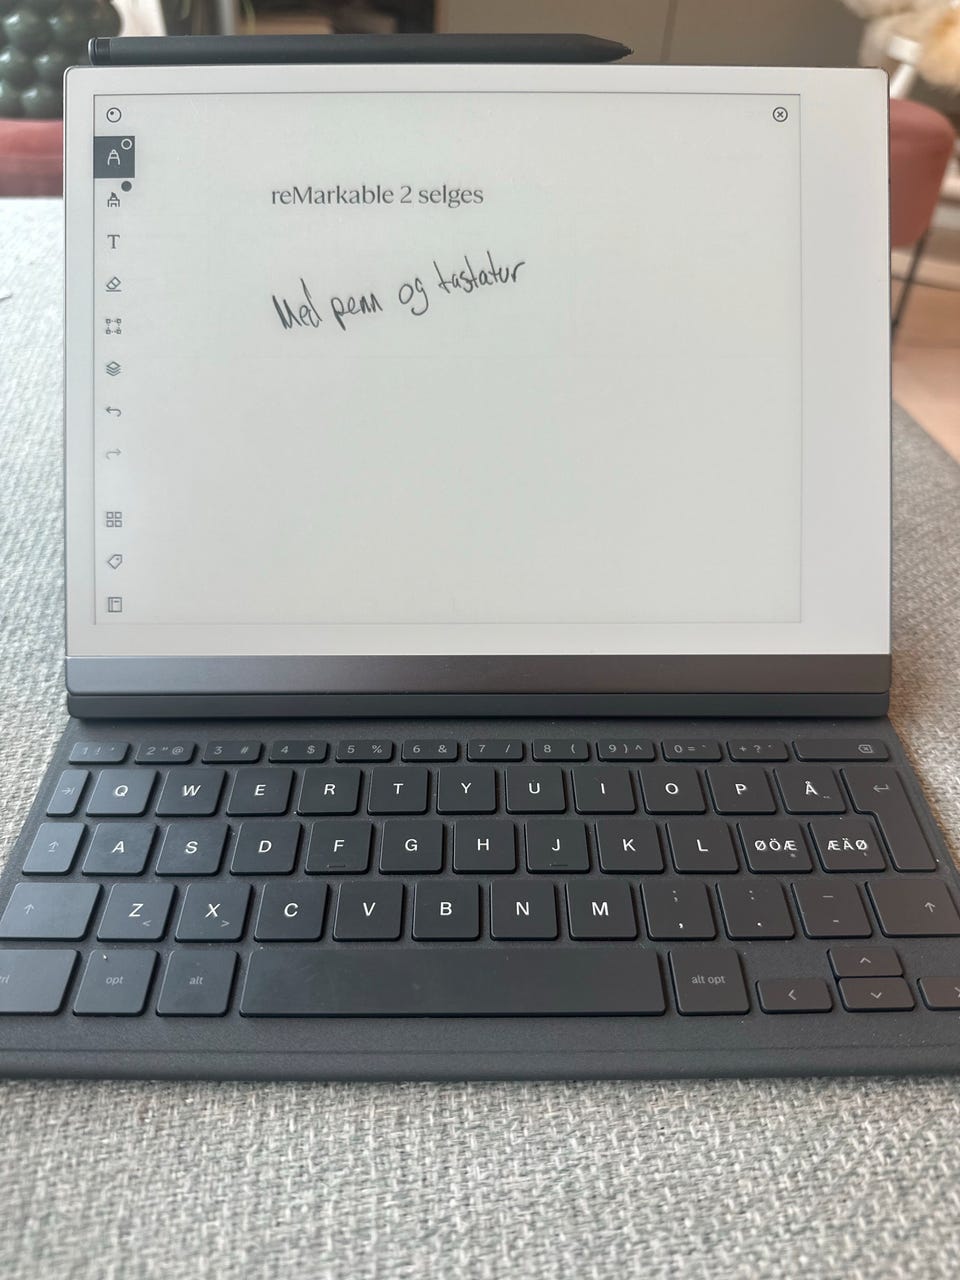 reMarkable 2 selges
Med penn og tastatur
1 ! '
2 " @
3 #
4 $
5 %
6 &
7 /
8 (
9 ) ^
0 = `
+ ? ´
Q W E R T Y U I O P Å ¨
A S D F G H J K L ØÖÆ ÆÄØ
Z < X > C V B N M ; , : . _ -
opt alt alt opt